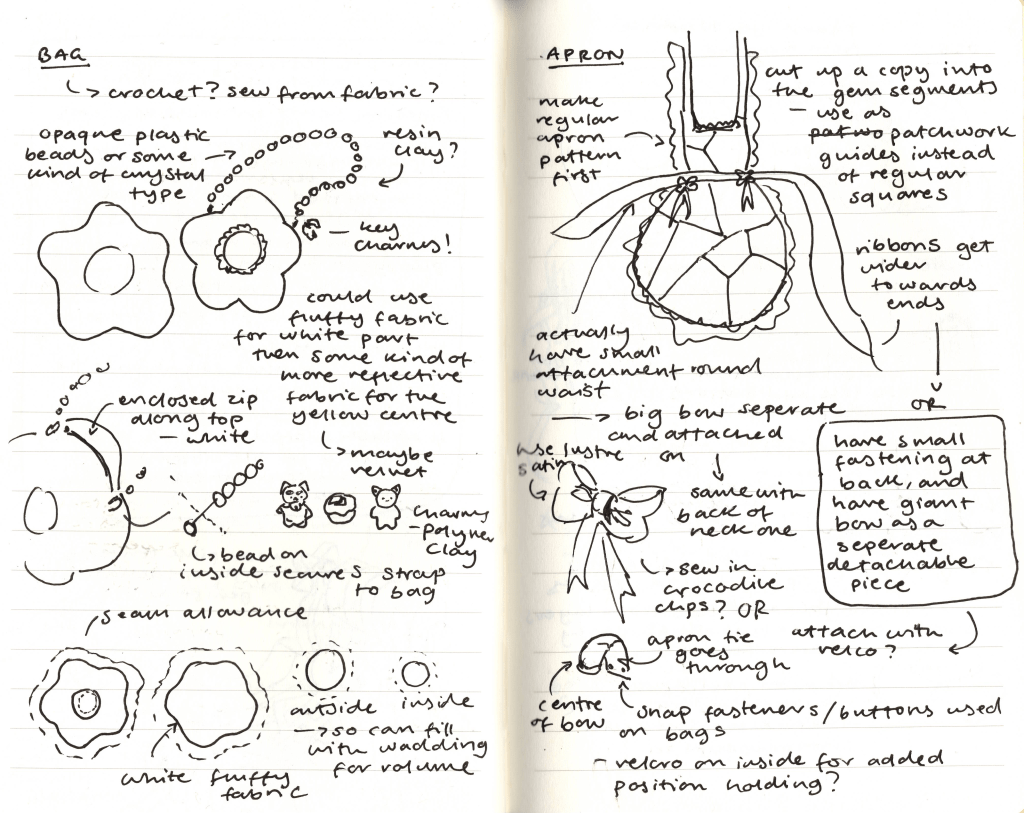 BAG
↳ crochet? sew from fabric?
opaque plastic
beads or some
kind of crystal
type
resin
clay?
key
charms!
could use
fluffy fabric
for white part
then some kind of
more reflective
fabric for the
yellow centre
↳ maybe
velvet
enclosed zip
along top
- white
charms
- polymer
clay
↳ bead on
inside secures strap
to bag
seam allowance
outside
inside
→ so can fill
with wadding
for volume
white fluffy
fabric
APRON
make
regular
apron
pattern
first
cut up a copy into
the gem segments
- use as
patwo patchwork
guides instead
of regular
squares
ribbons get
wider
towards
ends
actually
have small
attachment round
waist
→ big bow seperate
and attached
on
OR
have small
fastening at
back, and
have giant
bow as a
seperate
detachable
piece
use lustre
satin
same with
back of
neck one
↳ sew in
crocodile
clips? OR
apron tie
goes
through
attach with
velco?
centre
of bow
snap fasteners/buttons used
on bags
- velcro on inside for added
position holding?